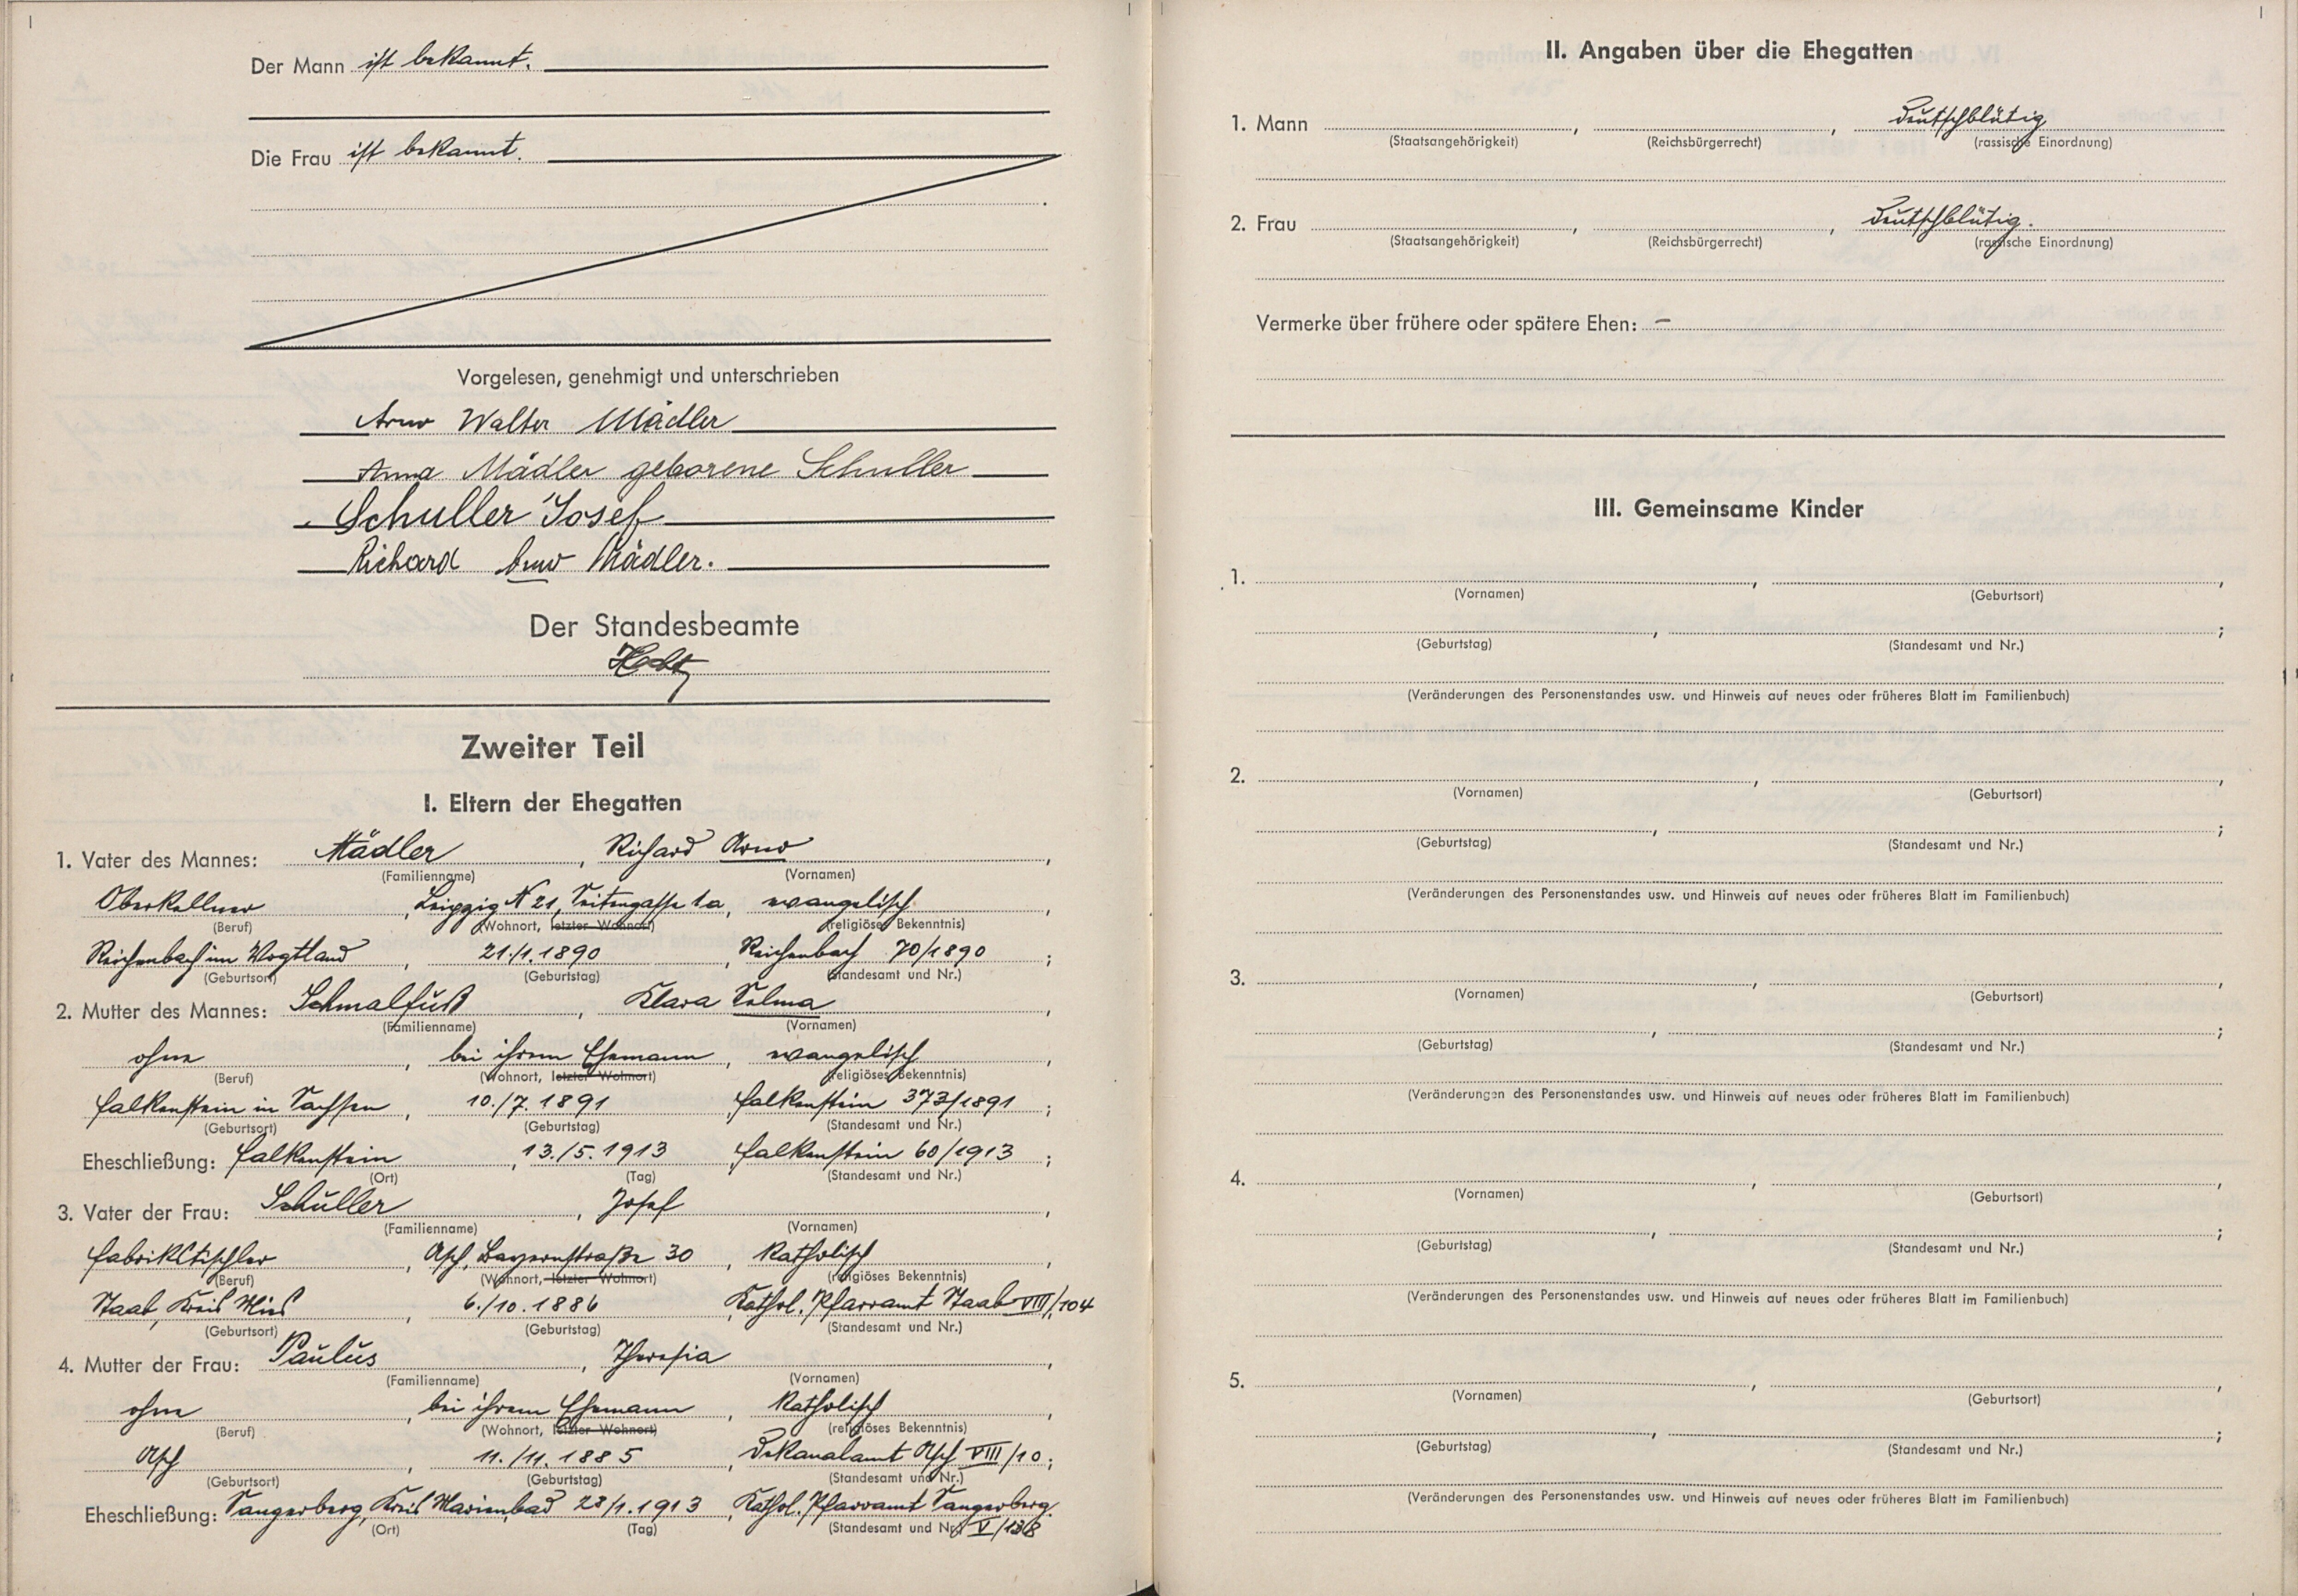 Der Mann ist bekannt.
Die Frau ist bekannt.
Vorgelesen, genehmigt und unterschrieben
Arno Walter Mädler
Anna Mädler geborene Schuller
Schuller Josef
Richard Arno Mädler.
Der Standesbeamte
Zweiter Teil
I. Eltern der Ehegatten
1. Vater des Mannes: Mädler, Richard Arno,
(Familienname) (Vornamen)
Oberkellner, Leipzig N 21, Seitengasse 1a, evangelisch,
(Beruf) (Wohnort, letzter Wohnort) (religiöses Bekenntnis)
Reichenbach im Vogtland, 21./1.1890, Reichenbach 70/1890;
(Geburtsort) (Geburtstag) (Standesamt und Nr.)
2. Mutter des Mannes: Schmalfuß, Klara Selma,
(Familienname) (Vornamen)
ohne, bei ihrem Ehemann, evangelisch,
(Beruf) (Wohnort, letzter Wohnort) (religiöses Bekenntnis)
Falkenstein in Sachsen, 10./7.1891, Falkenstein 373/1891;
(Geburtsort) (Geburtstag) (Standesamt und Nr.)
Eheschließung: Falkenstein, 13./5.1913, Falkenstein 60/1913;
(Ort) (Tag) (Standesamt und Nr.)
3. Vater der Frau: Schuller, Josef,
(Familienname) (Vornamen)
Fabriktischler, Asch, Bayernstraße 30, katholisch,
(Beruf) (Wohnort, letzter Wohnort) (religiöses Bekenntnis)
Staab, Kreis Mies, 6./10.1886, Kathol. Pfarramt Staab VIII/104
(Geburtsort) (Geburtstag) (Standesamt und Nr.)
4. Mutter der Frau: Paulus, Theresia,
(Familienname) (Vornamen)
ohne, bei ihrem Ehemann, katholisch,
(Beruf) (Wohnort, letzter Wohnort) (religiöses Bekenntnis)
Asch, 11./11.1885, Dekanalamt Asch VIII/10;
(Geburtsort) (Geburtstag) (Standesamt und Nr.)
Eheschließung: Sangerberg, Kreis Marienbad 28/1.1913, Kathol. Pfarramt Sangerberg.
(Ort) (Tag) (Standesamt und Nr.) V/138
II. Angaben über die Ehegatten
1. Mann, , deutschblütig
(Staatsangehörigkeit) (Reichsbürgerrecht) (rassische Einordnung)
2. Frau, , deutschblütig.
(Staatsangehörigkeit) (Reichsbürgerrecht) (rassische Einordnung)
Vermerke über frühere oder spätere Ehen: –
III. Gemeinsame Kinder
1. , ,
(Vornamen) (Geburtsort)
, ;
(Geburtstag) (Standesamt und Nr.)
(Veränderungen des Personenstandes usw. und Hinweis auf neues oder früheres Blatt im Familienbuch)
2. , ,
(Vornamen) (Geburtsort)
, ;
(Geburtstag) (Standesamt und Nr.)
(Veränderungen des Personenstandes usw. und Hinweis auf neues oder früheres Blatt im Familienbuch)
3. , ,
(Vornamen) (Geburtsort)
, ;
(Geburtstag) (Standesamt und Nr.)
(Veränderungen des Personenstandes usw. und Hinweis auf neues oder früheres Blatt im Familienbuch)
4. , ,
(Vornamen) (Geburtsort)
, ;
(Geburtstag) (Standesamt und Nr.)
(Veränderungen des Personenstandes usw. und Hinweis auf neues oder früheres Blatt im Familienbuch)
5. , ,
(Vornamen) (Geburtsort)
, ;
(Geburtstag) (Standesamt und Nr.)
(Veränderungen des Personenstandes usw. und Hinweis auf neues oder früheres Blatt im Familienbuch)